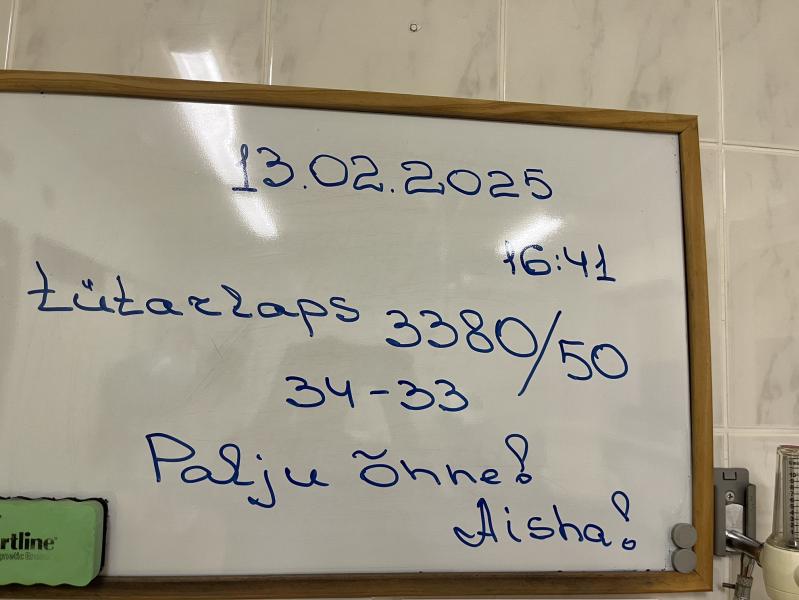 13.02.2025
16:41
tütarlaps 3380/50
34-33
Palju õnne!
Aisha!
rtline